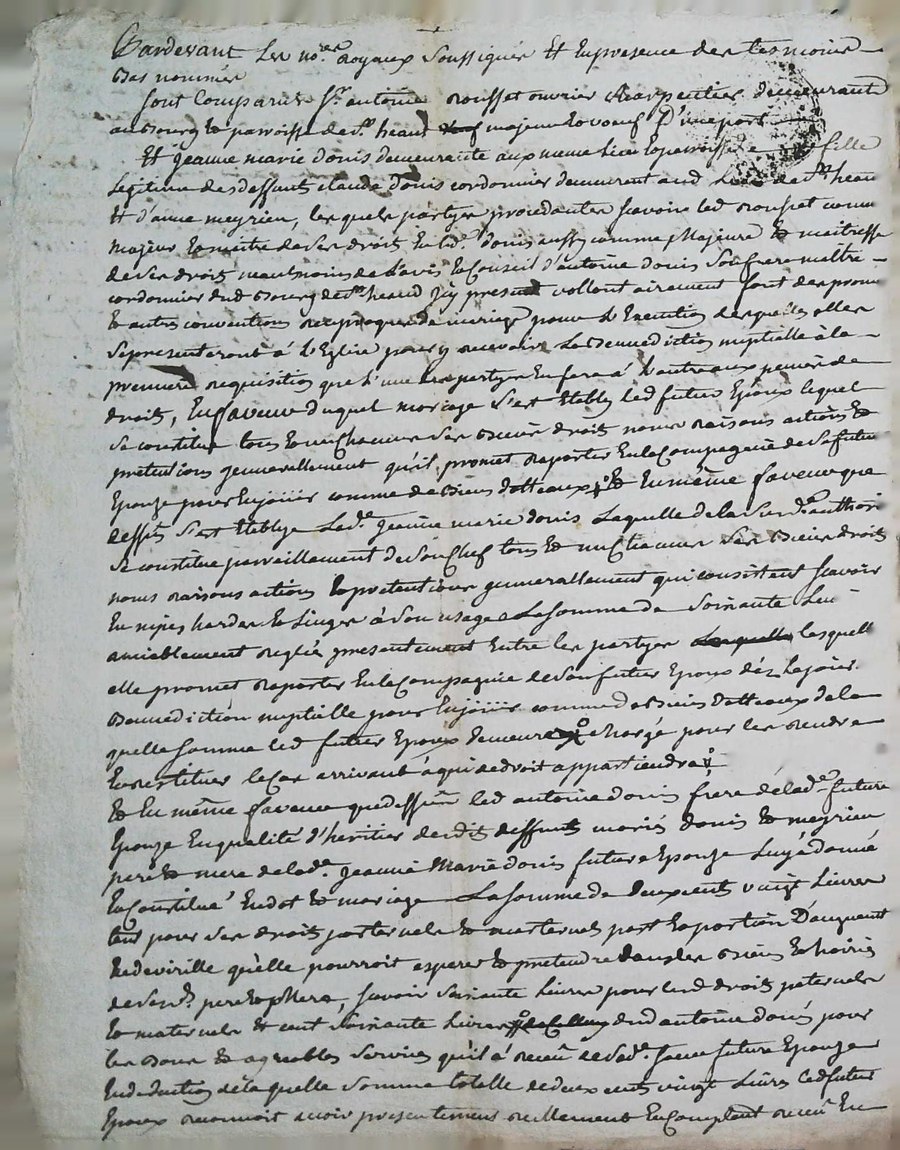 Pardevant Les no.res Royaux Soussignés Et En presence des tesmoins
Bas nommés
Sont Comparus Sr. antoine rousset ouvrier charpentier demeurant
au bourg & parroisse de st. heand majeur & veuf D'une part
Et jeanne marie donis demeurante aux meme lieu & parroisse fille
Legitime de deffunts claude donis cordonnier demeurant aud. Lieu de st. heand
Et d'anne meyrieu, lesquels partyes procedantes scavoir led. rousset comme
majeur & maitre de ses droits Et lad. donis aussy comme Majeure & maitresse
de ses droits neantmoins de L'avis & Conseil d'antoine donis Son frere maitre
cordonnier dud. Bourg de st. heand Icy present vollontairement font des promesses
& autres conventions reciproques de mariage pour L'Execution desquelles elles
Se presenteront à L'Eglise pour y recevoir La Bennediction nuptialle à la
premiere requisition que L'une des partyes En fera à L'autre aux peines de
droits, En faveur duquel mariage S'est Etably led. futur Epoux lequel
Se constitue tous & un Chacuns Ses Biens droits noms raisons actions &
pretentions generrallement qu'il promet Raporter En la Compagnie de Sa future
Eponze pour En jouiir comme de Biens dottaux, & En même faveur que
dessus S'est Etablye Lad. jeanne marie donis Laquelle de la Susd. authori
Se constitue pareillement de Son Chef tous & un Chacuns Ses Biens droits
noms raisons actions & pretentions generrallement qui consistent scavoir
En nipes hardes & Linges à Son usage La Somme de Soixante Liv
amiablement reglés presentement Entre les partyes lesquells
elle promet Raporter En la Compagnie de Son futur Epoux dez Le jour
Bennediction nuptialle pour En jouiir comme de Biens dottaux de la
quelle Somme led. futur Epoux demeure chargé pour les rendre
& restituer le Cas arrivant à qui de droit appartiendra
& En même faveur que dessus led. antoine donis frere de lad. future
Eponze En qualité d'heritier desdits deffunts mariés donis & meyrieu
pere & mere de lad. jeanne Marie donis future Eponze Luy à donné
& Constitué En dot & mariage La Somme de deux cents vingt Livres
tant pour Ses droits paternels & maternels part & portion D'augment
& de virille qu'elle pourroit esperer & pretendre dans les Biens & hoiries
de Sesd. pere & mere, scavoir Soixante Livres pour lesd. droits paternels
& maternels & cent Soixante Livres dud. antoine donis pour
les Bons & agreables Services qu'il à receu de Sad. Soeur future Eponze
En deduction de la quelle Somme totalle de deux cents vingt Livres Led. futur
Epoux reconnoit avoir presentement reellement & Comptant receu En